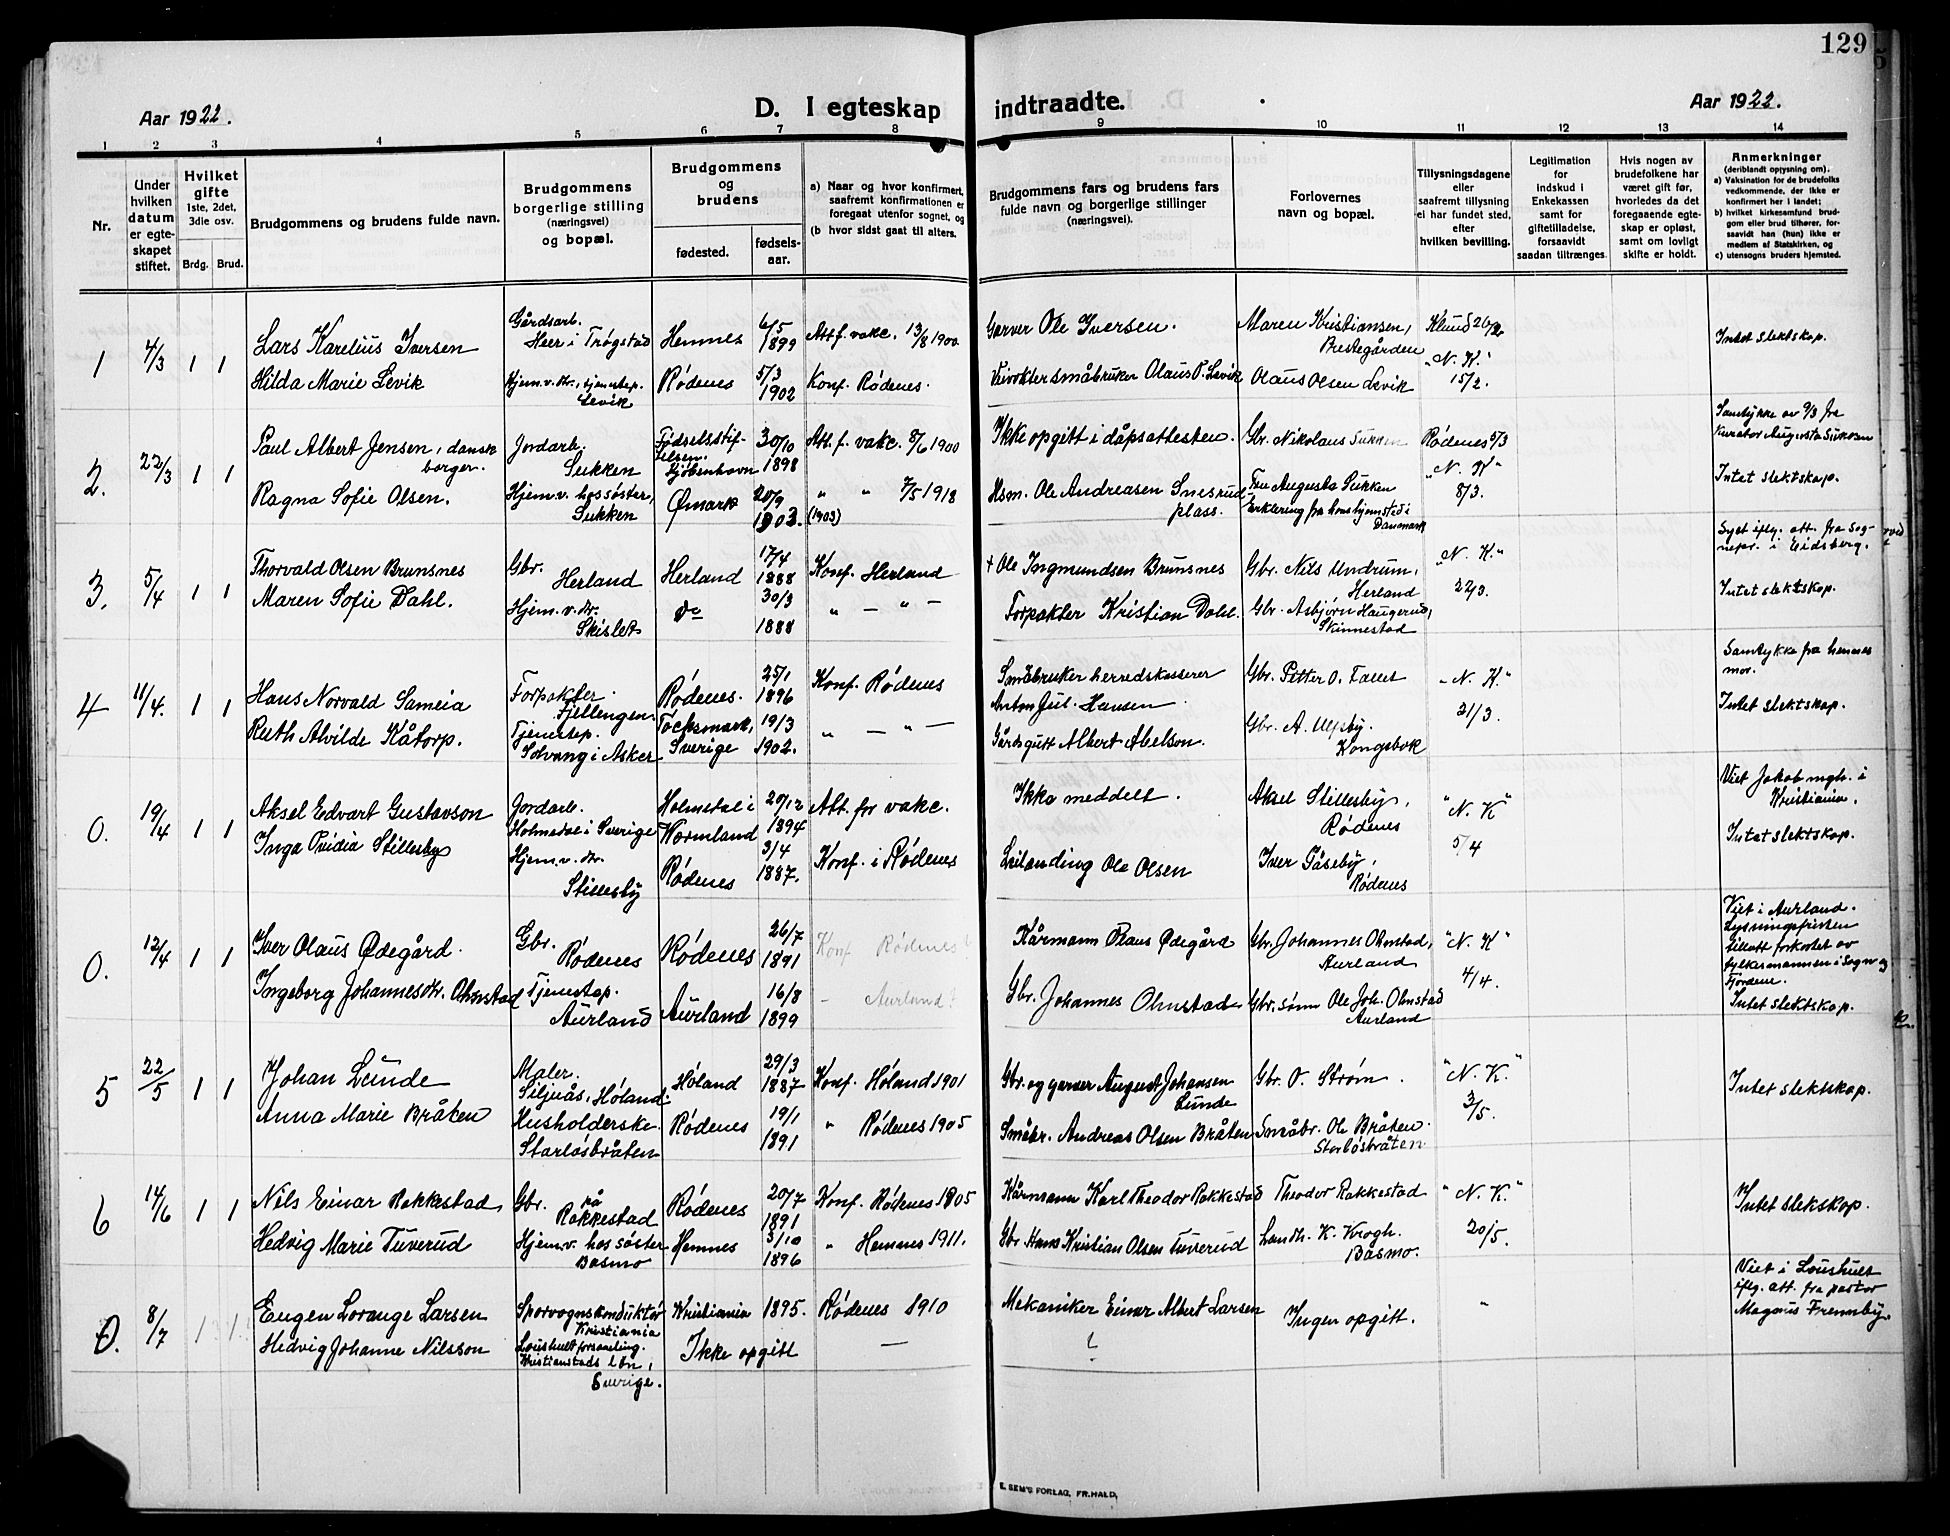 129
Aar 1922.
D. I egteskap
indtraadte.
Aar 1922.
1 2 3 4 5 6 7 8 9 10 11 12 13 14
Nr.
Under hvilken datum er egteskapet stiftet.
Hvilket gifte 1ste, 2det, 3die osv.
Brdg. Brud.
Brudgommens og brudens fulde navn.
Brudgommens borgerlige stilling (næringsvei) og bopæl.
Brudgommens og brudens
fødested.
fødselsaar.
a) Naar og hvor konfirmert, saafremt konfirmationen er foregaat utenfor sognet, og
(b hvor sidst gaat til alters.
Brudgommens fars og brudens fars fulde navn og borgerlige stillinger (næringsvei).
Forlovernes navn og bopæl.
Tillysningsdagene eller saafremt tillysning ei har fundet sted, efter hvilken bevilling.
Legitimation for indskud i Enkekassen samt for giftetilladelse, forsaavidt saadan tiltrænges.
Hvis nogen av brudefolkene har været gift før, hvorledes da det foregaaende egteskap er opløst, samt om lovligt skifte er holdt.
Anmerkninger
(deriblandt opjysning om).
a) Vaksination for de brudefolks vedkommende, der ikke er konfirmert her i landet;
b) hvilket kirkesamfund brudgom eller brud tilhører, forsaavidt han (hun) ikke er medlem af Statskirken, og
c) utensogns bruders hjemsted.
1 4/3 1 1
Lars Karelius Iversen
Hilda Marie Levik
Gårdsarb.
Heer i Trøgstad
Hjem.v.br., tjenestep.
Levik
Hemnes 6/5 1899
Rødenes 5/3 1902
Att f. vakc. 13/8 1900
Konf. Rødenes.
Garver Ole Iversen.
Veivokter småbruker Olaus P. Levik
Maren Kristiansen,
Prestegården
Olaus Olsen Levik
"N. K."
15/2.
Intet slektskap.
2. 22/3 1 1
Paul Albert Jensen, dansk
borger.
Ragna Sofie Olsen.
Jordarb.
Sukken
Hjem.v. hos søster,
Sukken
Fødselsstiftelsen
Kjøbenhavn
30/10 1898
Ømark 20/9 1903.
Att. f. vakc. 8/6 1900
" " 7/5 1918
(1903)
Ikke opgitt i dåpsattesten.
Hsm. Ole Andreasen Snesrud
plass.
Gbr. Nikolaus Sukken
Fru Augusta Sukken
Erklering fra hans hjemsted i
Danmark
Rødenes 5/3
"N. K"
8/3.
Samtykke av 9/3 fra
kurator Augusta Sukken
Intet slektskap.
3. 5/4 1 1
Thorvald Olsen Brunsnes
Maren Sofie Dahl.
Gbr.
Herland
Hjem.v.br.
Skislet
Herland 17/4 1888
do 30/3 1888
Konf. Herland
" — " —
+ Ole Ingmundsen Brunsnes
Forpakter Kristian Dahl.
Gbr. Nils Undrum,
Herland
Gbr. Asbjørn Haugerud,
Skinnestad
"N. K."
22/3.
Intet slektskap.
4 11/4. 1 1
Hans Norvald Sameia
Ruth Alvilde Kåtorp.
Forpakter
Fjellengen.
Tjenestep.
Solvang i Asker
Rødenes. 25/1 1896
Töcksmark,
Sverige 19/3 1902.
Konf. Rødenes
" — " —
Småbruker herredskasserer
Anton Jul. Hansen
Gårdsgutt Albert Abelson.
Gbr. Petter O. Faller
Gbr. A. Ulfsby.
Kongsbok
"N. K."
21/3.
Samtykke fra hennes
mor.
Intet slektskap.
0. 19/4 1 1
Aksel Edvart Gustavson
Inga Ovidia Stillesby
Jordarb.
Holmedal i Sverige
Hjem.v.br.
Stillesby
Holmedal i
Wermland 20/12 1894
Rødenes 3/4 1887.
Att. for vakc.
Konf. i Rødenes
Ikke meddelt.
Leilending Ole Olsen
Aksel Stillesby,
Rødenes
Iver Gåseby,
Rødenes
"N. K"
5/4
Viet Jakob mgh. i
Kristiania.
Intet slektskap.
0. 12/4 1 1
Iver Olaus Ødegård.
Ingeborg Johannesdtr. Ohnstad
Gbr.
Rødenes
Tjenestep.
Aurland
Rødenes 26/7 1891
Aurland 16/8 1899
Konf Rødenes?
- Aurland?
Kårmann Olaus Ødegård
Gbr. Johannes Ohnstad
Gbr. Johannes Ohnstad,
Aurland
Gbr. sønn Ole Joh. Ohnstad
Aurland
"N. K"
4/4.
Viet i Aurland.
Lysningsfristen
tillatt forkortet av
fylkesmannen i Sogn og
Fjordene.
Intet slektskap.
5 22/5 1 1
Johan Lunde
Anna Marie Bråten
Maler.
Siljuås, Høland.
Husholderske.
Storløsbråten
Høland 29/3 1887
Rødenes 19/1 1891
Konf. Høland 1901
" Rødenes 1905
Gbr. og garver August Johansen
Lunde
Småbr. Andreas Olsen Bråten
Gbr. O. Strøm.
Småbr. Ole Bråten.
Storløsbråten
"N. K."
3/5.
Intet slektskap.
6 14/6 1 1
Nils Einar Rakkestad,
Hedvig Marie Tuverud
Gbr. på
Rakkestad
Hjem.v. hos søster
Basmo
Rødenes 20/7 1891
Hemnes 3/10 1896
Konf. Rødenes 1905
" Hemnes 1911.
Kårmann Karl Theodor Rakkestad
Gbr Hans Kristian Olsen Tuverud
Theodor Rakkestad
Landh. K. Krogh.
Basmo.
"N. K."
20/5.
Intet slekskap.
0. 8/7 1 1.
Eugen Lorange Larsen
Hedvig Johanne Nilsson
Sporvognskonduktør
Kristiania
Loushult forsamling.
Kristianstads län,
Sverige.
Kristiania 1895.
Ikke opgitt
Rødenes 1910
—
Mekaniker Einar Albert Larsen
?
Ingen opgitt.
"
Viet i Loushult
iflg. att. fra pastor
Magnus Frennby.
E. SEM'S FORLAG, FR.HALD.